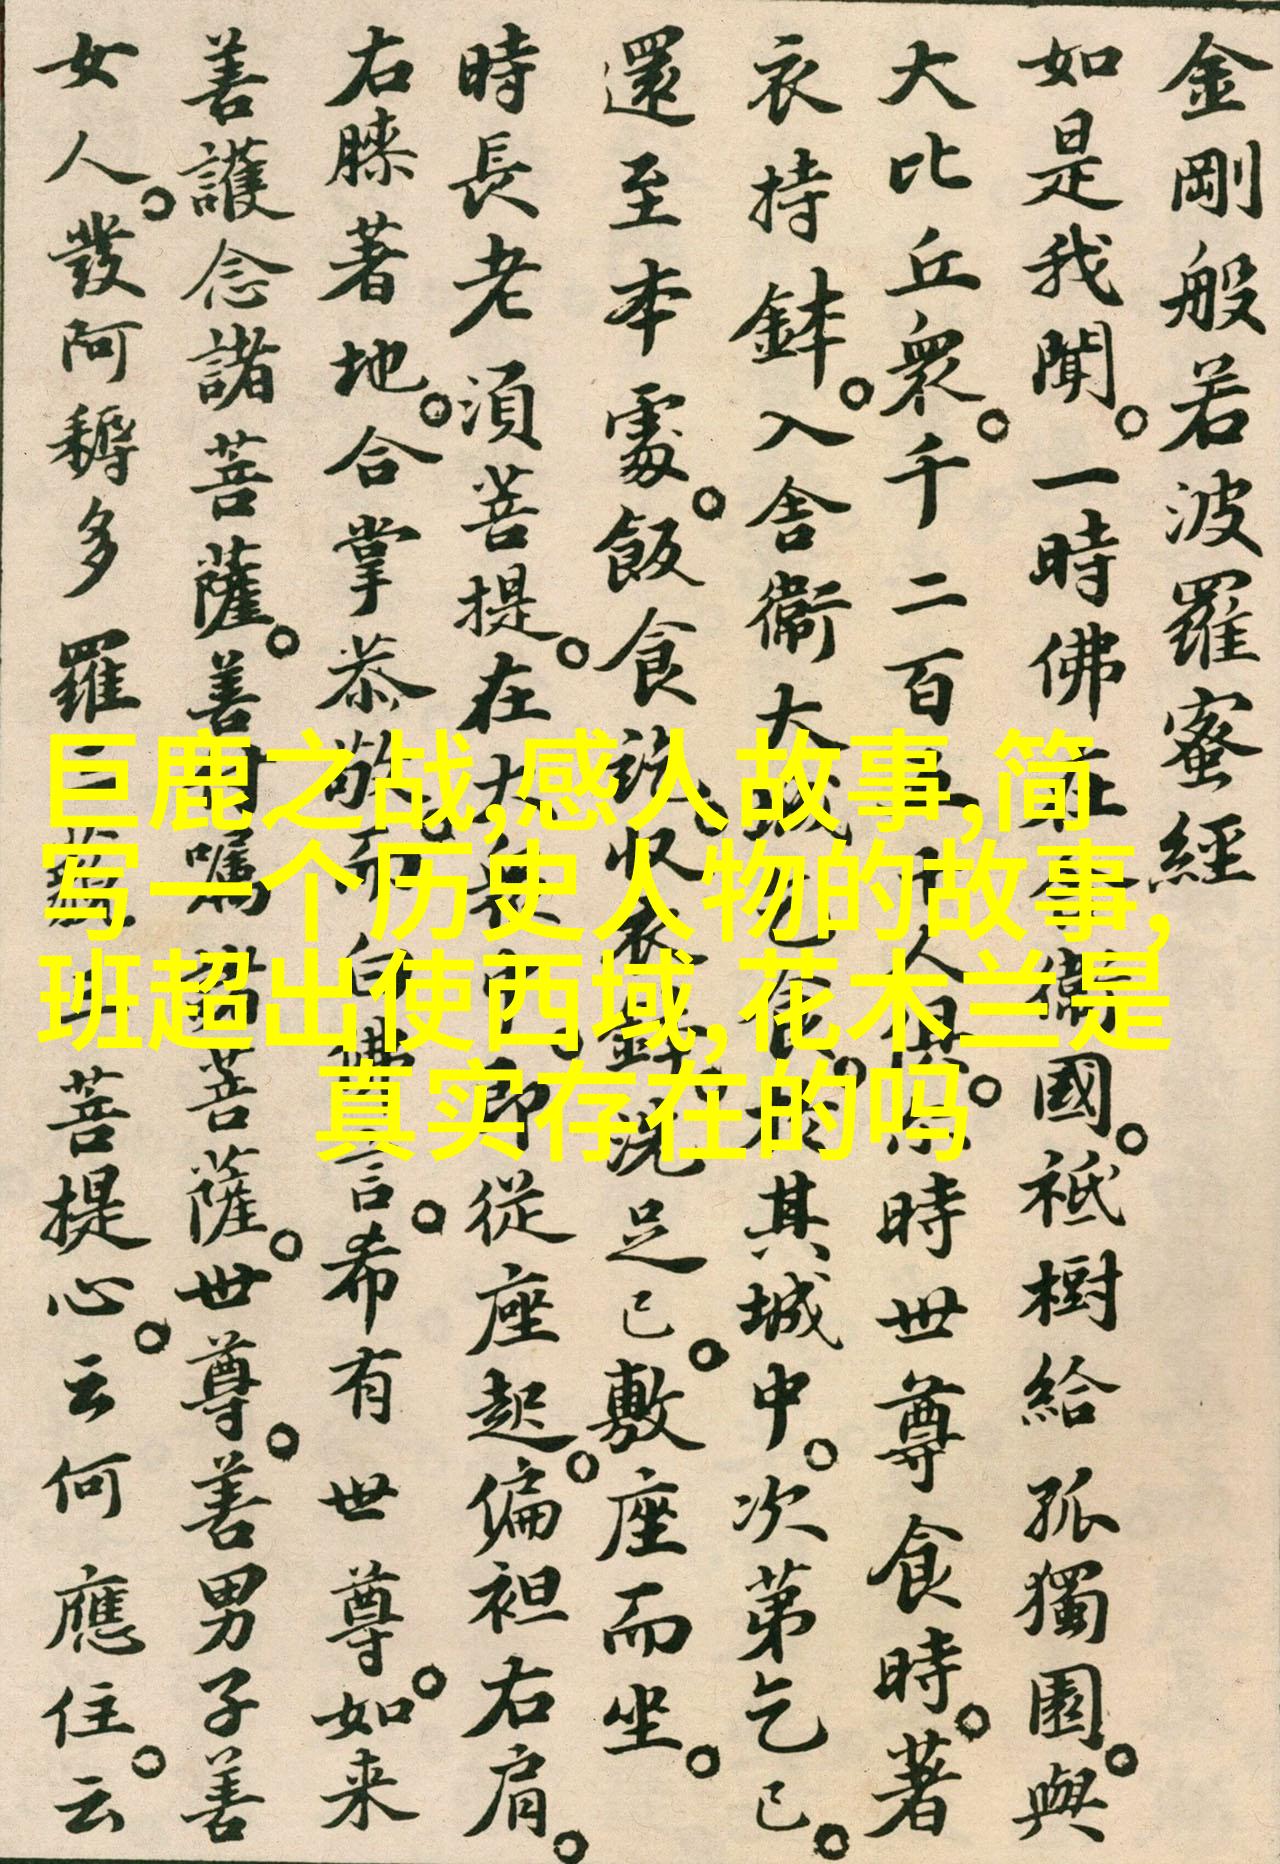 金剛般若波羅蜜經
如是我聞。一時佛在舍衞國。祇樹給孤獨園。與
大比丘衆。千二百五十人俱。尒時世尊食時。著
衣持鉢。入舍衞大城乞食。於其城中。次第乞已。
還至本處。飯食訖。収衣鉢。洗足已。敷座而坐。
時長老須菩提。在大衆中。即從座起。偏袒右肩。
右膝著地。合掌恭敬。而白佛言。希有世尊。如来
善護念諸菩薩。善付嘱諸菩薩。世尊。善男子善
女人。發阿耨多羅三藐三菩提心。云何應住。云
巨鹿之战,感人故事,简
写一个历史人物的故事,
班超出使西域,花木兰是
真实存在的吗